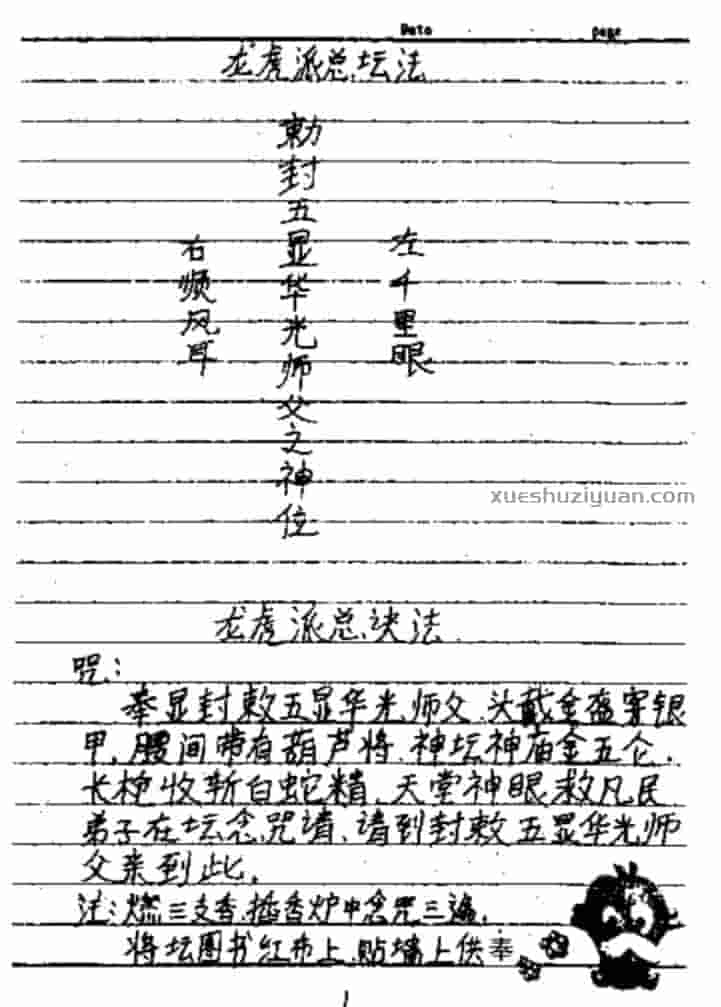 Date page
龙虎派总坛法
左千里眼
勅封五显华光师父之神位
右顺风耳
xueshuziyuan.com
龙虎派总诀法
咒：
奉显封敕五显华光师父、头戴金盔穿银
甲，腰间带有葫芦将、神坛神庙金五仑，
长枪收斩白蛇精、天堂神眼救凡民
弟子在坛念咒请、请到封敕五显华光师
父亲到此。
注：燃三支香、插香炉中念咒三遍，
将坛图书红布上、贴墙上供奉
1